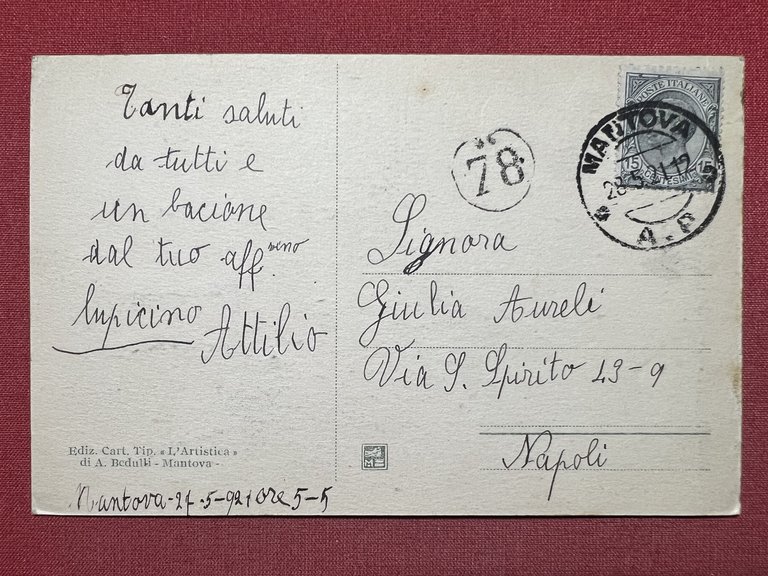 Tanti saluti
da tutti e
un bacione
dal tuo aff.
lupicino
Attilio
Ediz. Cart. Tip. « L'Artistica »
di A. Bedulli - Mantova -
Mantova - 27 - 5 - 921 ore 5-5
78
POSTE ITALIANE
15 15
MANTOVA
A.P
Signora
Giulia Aureli
Via S. Spirito 43-9
Napoli